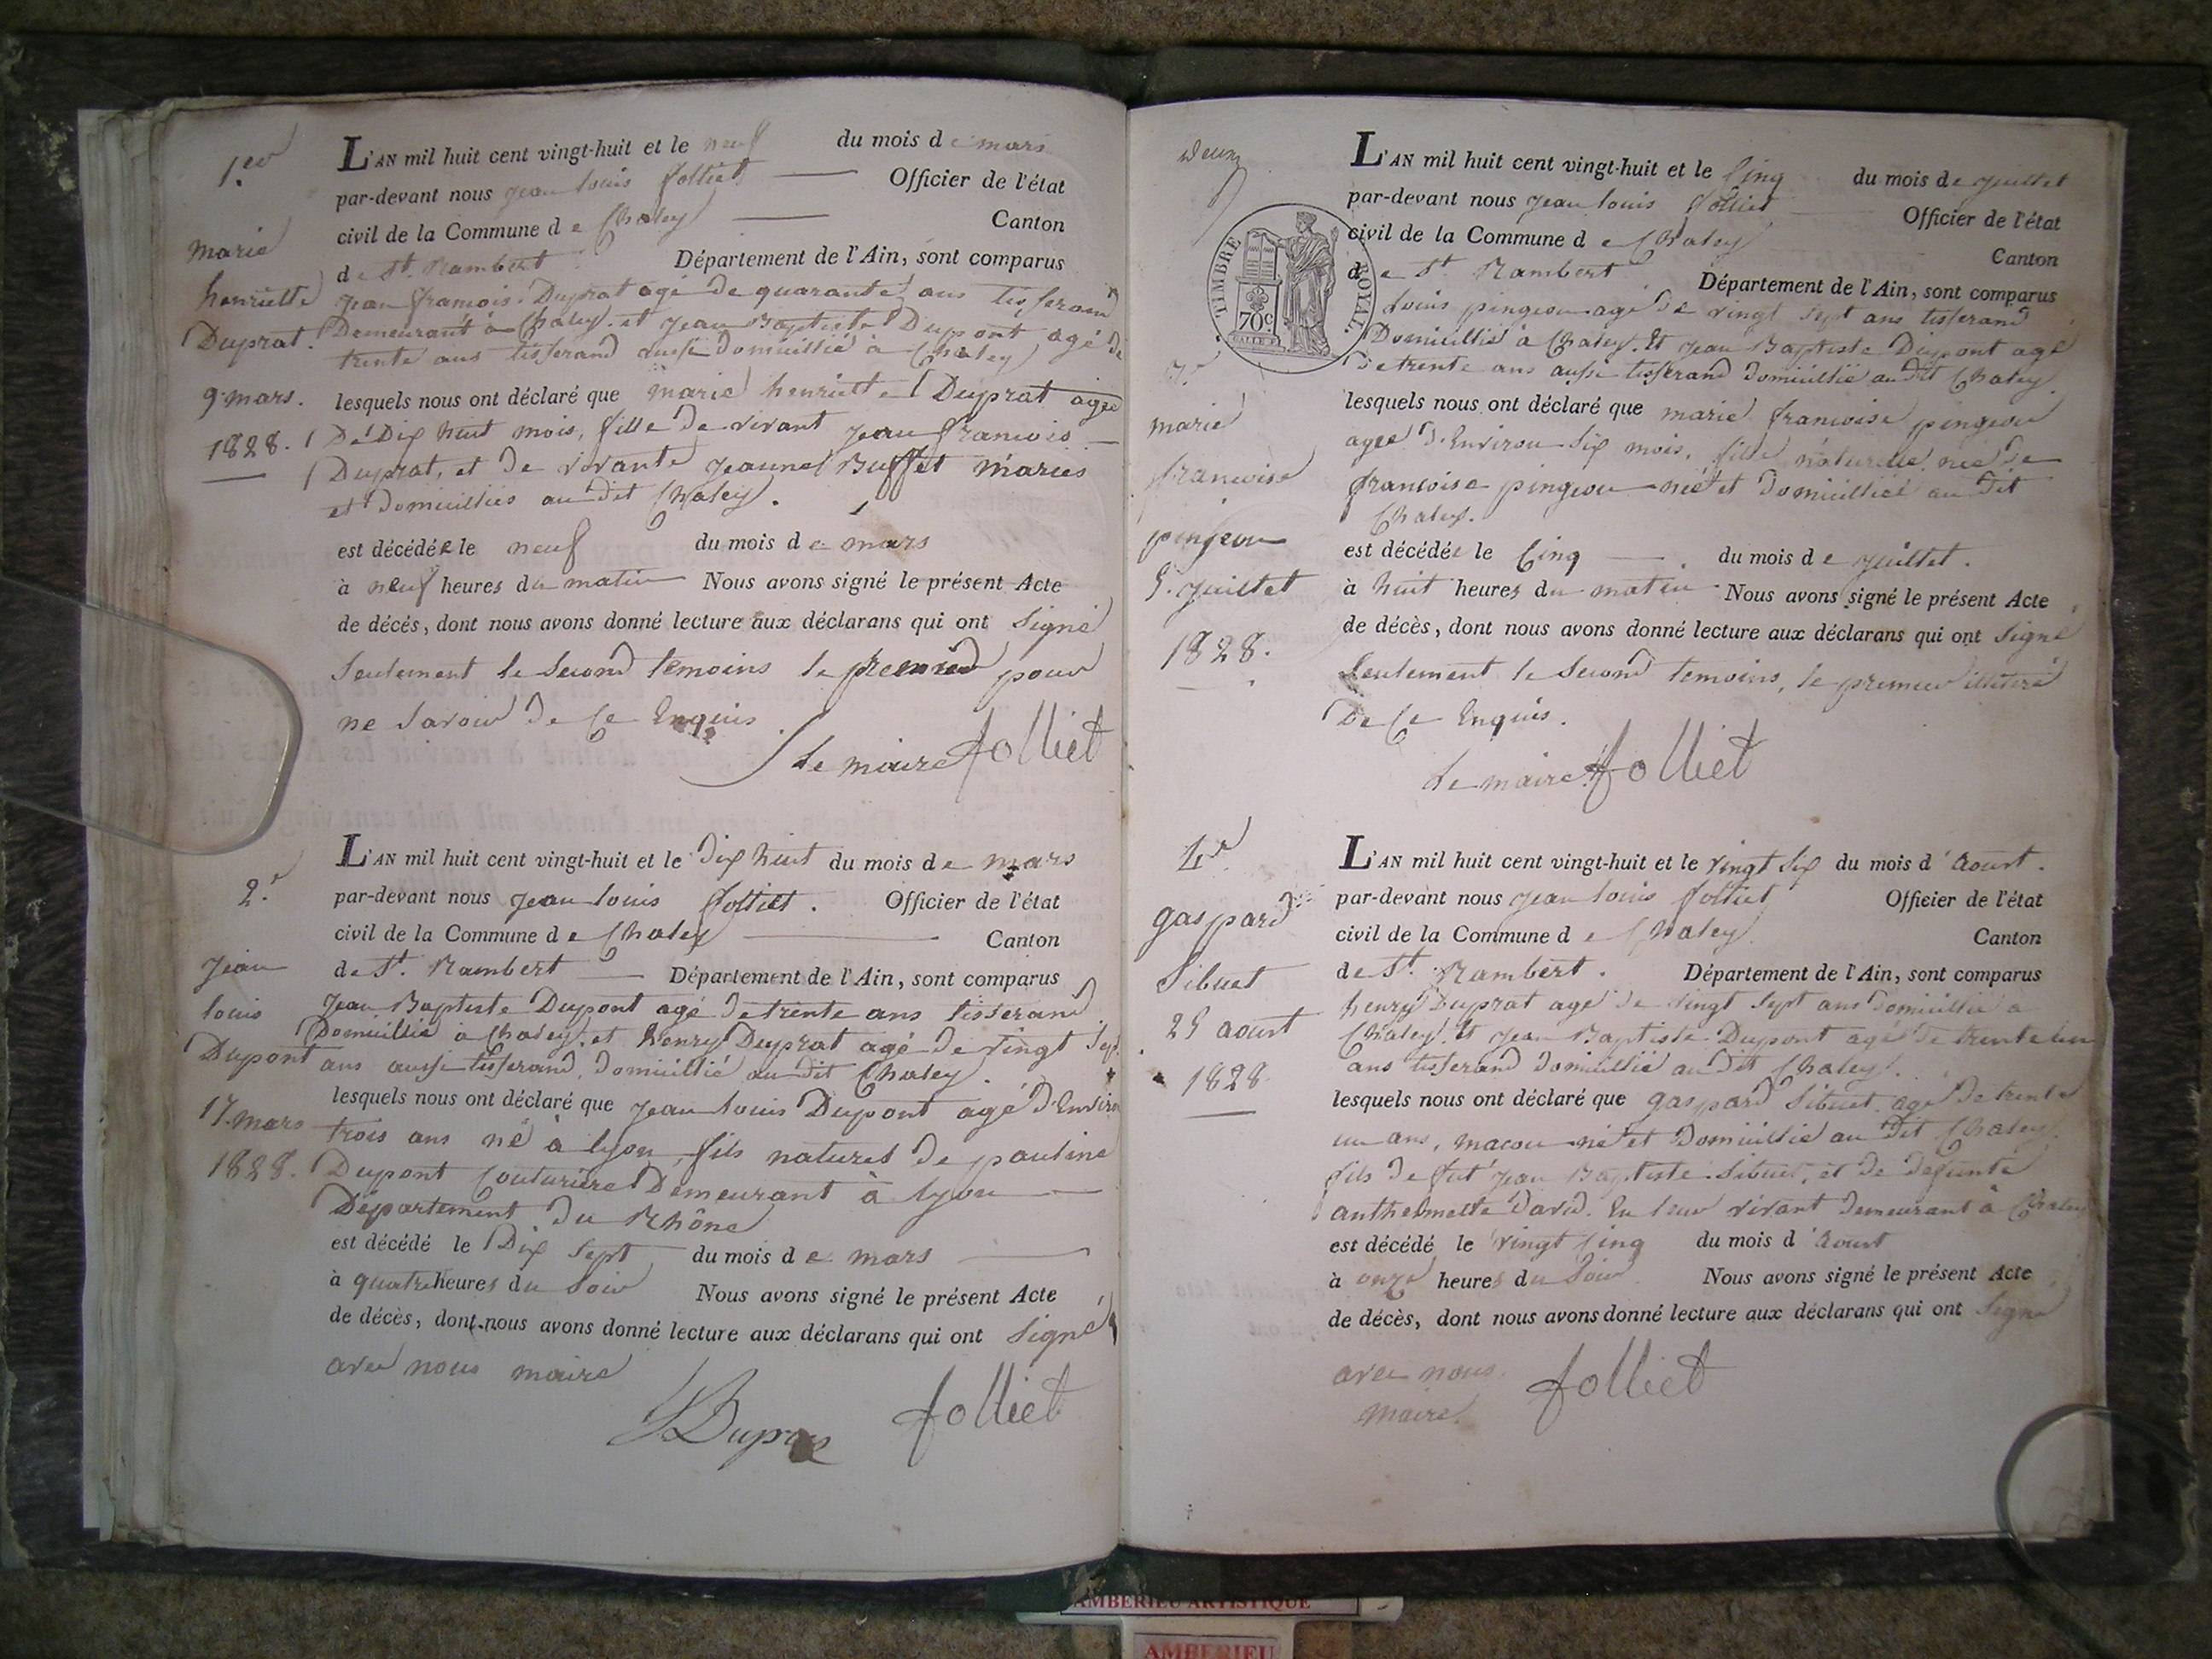 1.er
marie
henriette
Duprat.
9. mars.
1828.
L'AN mil huit cent vingt-huit et le neuf du mois de mars
par-devant nous jean louis folliet Officier de l'état
civil de la Commune de Chaley Canton
de St. Rambert Département de l'Ain, sont comparus
jean francois Duprat agé de quarante ans tisserand
Demeurant à Chaley. et jean Baptiste Dupont agé de
trente ans tisserand aussi domicillié à Chaley
lesquels nous ont déclaré que marie henriette Duprat agée
De Dix huit mois, fille de vivant jean francois
Duprat, et de vivante jeanne Buffet mariés
et Domicilliés au dit Chaley.
est décédée le neuf du mois de mars
à neuf heures du matin Nous avons signé le présent Acte
de décés, dont nous avons donné lecture aux déclarans qui ont Signé
Seulement le Second temoins le premier pour
ne Savoir de Ce Enquis
le maire folliet
2.e
jean
louis
Dupont
17. mars
1828.
L'AN mil huit cent vingt-huit et le Dix huit du mois de mars
par-devant nous jean louis folliet. Officier de l'état
civil de la Commune de Chaley Canton
de St. Rambert Département de l'Ain, sont comparus
jean Baptiste Dupont agé de trente ans tisserand
Domicillié à Chaley. et henry Duprat agé de vingt Sept
ans aussi tisserand, Domicillié au dit Chaley.
lesquels nous ont déclaré que jean louis Dupont agé d'Environ
trois ans né à lyon, fils naturel de pauline
Dupont Couturière Demeurant à lyon
Département du Rhône
est décédé le Dix Sept du mois de mars
à quatre heures du Soir Nous avons signé le présent Acte
de décès, dont nous avons donné lecture aux déclarans qui ont Signé
avec nous maire
folliet
Deux
TIMBRE ROYAL.
70c
3.e
marie
francoise
pingeon
5. juillet
1828.
L'AN mil huit cent vingt-huit et le Cinq du mois de juillet
par-devant nous jean louis folliet Officier de l'état
civil de la Commune de Chaley Canton
de St. Rambert Département de l'Ain, sont comparus
louis pingeon agé de vingt Sept ans tisserand
Domicillié à Chaley. Et jean Baptiste Dupont agé
de trente ans aussi tisserand domicillié au dit Chaley.
lesquels nous ont déclaré que marie francoise pingeon
agée d'Environ Six mois, fille naturelle née de
francoise pingeon née et domicilliée au dit
Chaley.
est décédée le Cinq du mois de juillet.
à huit heures du matin Nous avons signé le présent Acte
de décès, dont nous avons donné lecture aux déclarans qui ont Signé
Seulement le Second temoins, le premier illitéré
De Ce Enquis.
le maire folliet
4.e
gaspard
Sibuet
25 aoust
1828
L'AN mil huit cent vingt-huit et le vingt Six du mois d'Aoust.
par-devant nous jean louis folliet Officier de l'état
civil de la Commune de Chaley Canton
de St. Rambert. Département de l'Ain, sont comparus
henry Duprat agé de vingt Sept ans domicillié à
Chaley. Et jean Baptiste Dupont agé de trente un
ans tisserand domicillié au dit Chaley.
lesquels nous ont déclaré que gaspard Sibuet agé de trente
un ans, macon né et Domicillié au dit Chaley.
fils de fut jean Baptiste Sibuet, et de defunte
anthelmette David. En leur vivant demeurant à Chaley
est décédé le vingt Cinq du mois d'Aoust
à onze heures du Soir Nous avons signé le présent Acte
de décès, dont nous avons donné lecture aux déclarans qui ont Signé
avec nous folliet
Maire.
AMBERIEU ARTISTIQUE
AMBERIEU